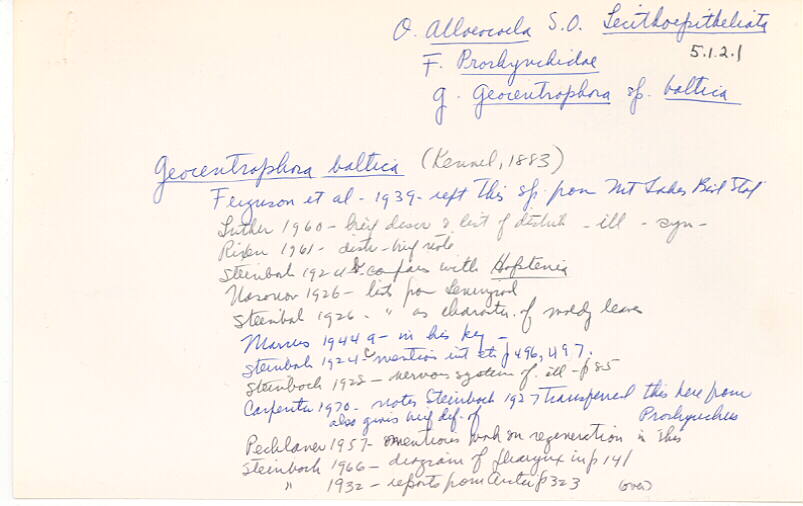 O. Alloeocoela S.O. Lecithoepitheliata
5.1.2.1
F. Prorhynchidae
g. Geocentrophora sp. baltica
Geocentrophora baltica (Kennel, 1883)
Ferguson et al - 1939 - rept this sp. from Mt Lakes Biol Stat
Luther 1960 - brief descr & list of distrib - ill - syn -
Rixen 1961 - distr - brief note
Steinböck 1924 - compares with Hofstenia
Nasonov 1926 - lists from Leningrad
Steinböck 1926 - " as character. of moldy leaves
Marcus 1944a - in his key -
Steinböck 1924c - mention int etc p 496, 497.
Steinböck 1928 - nervous system of. ill - p 85
Carpenter 1970 - notes Steinböck 1927 transferred this here from
also gives brief def. of Prorhynchus
Pechlaner 1957 - mentions work on regeneration in this
Steinböck 1966 - diagram of pharynx in p 141
" 1932 - reports from p 323 (over)